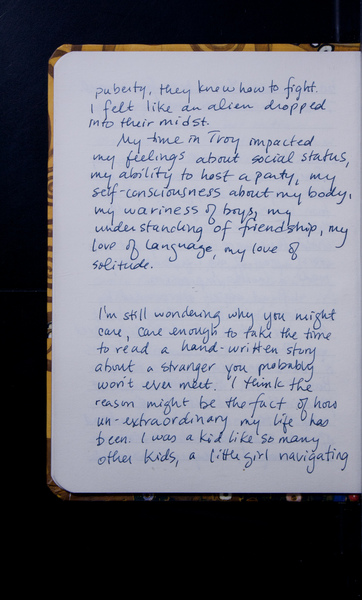 puberty, they knew how to fight.
I felt like an alien dropped
into their midst.
My time in Troy impacted
my feelings about social status,
my ability to host a party, my
self-consciousness about my body,
my wariness of boys, my
understanding of friendship, my
love of language, my love of
solitude.
I'm still wondering why you might
care, care enough to take the time
to read a hand-written story
about a stranger you probably
won't ever meet. I think the
reason might be the fact of how
un-extraordinary my life has
been. I was a kid like so many
other kids, a little girl navigating